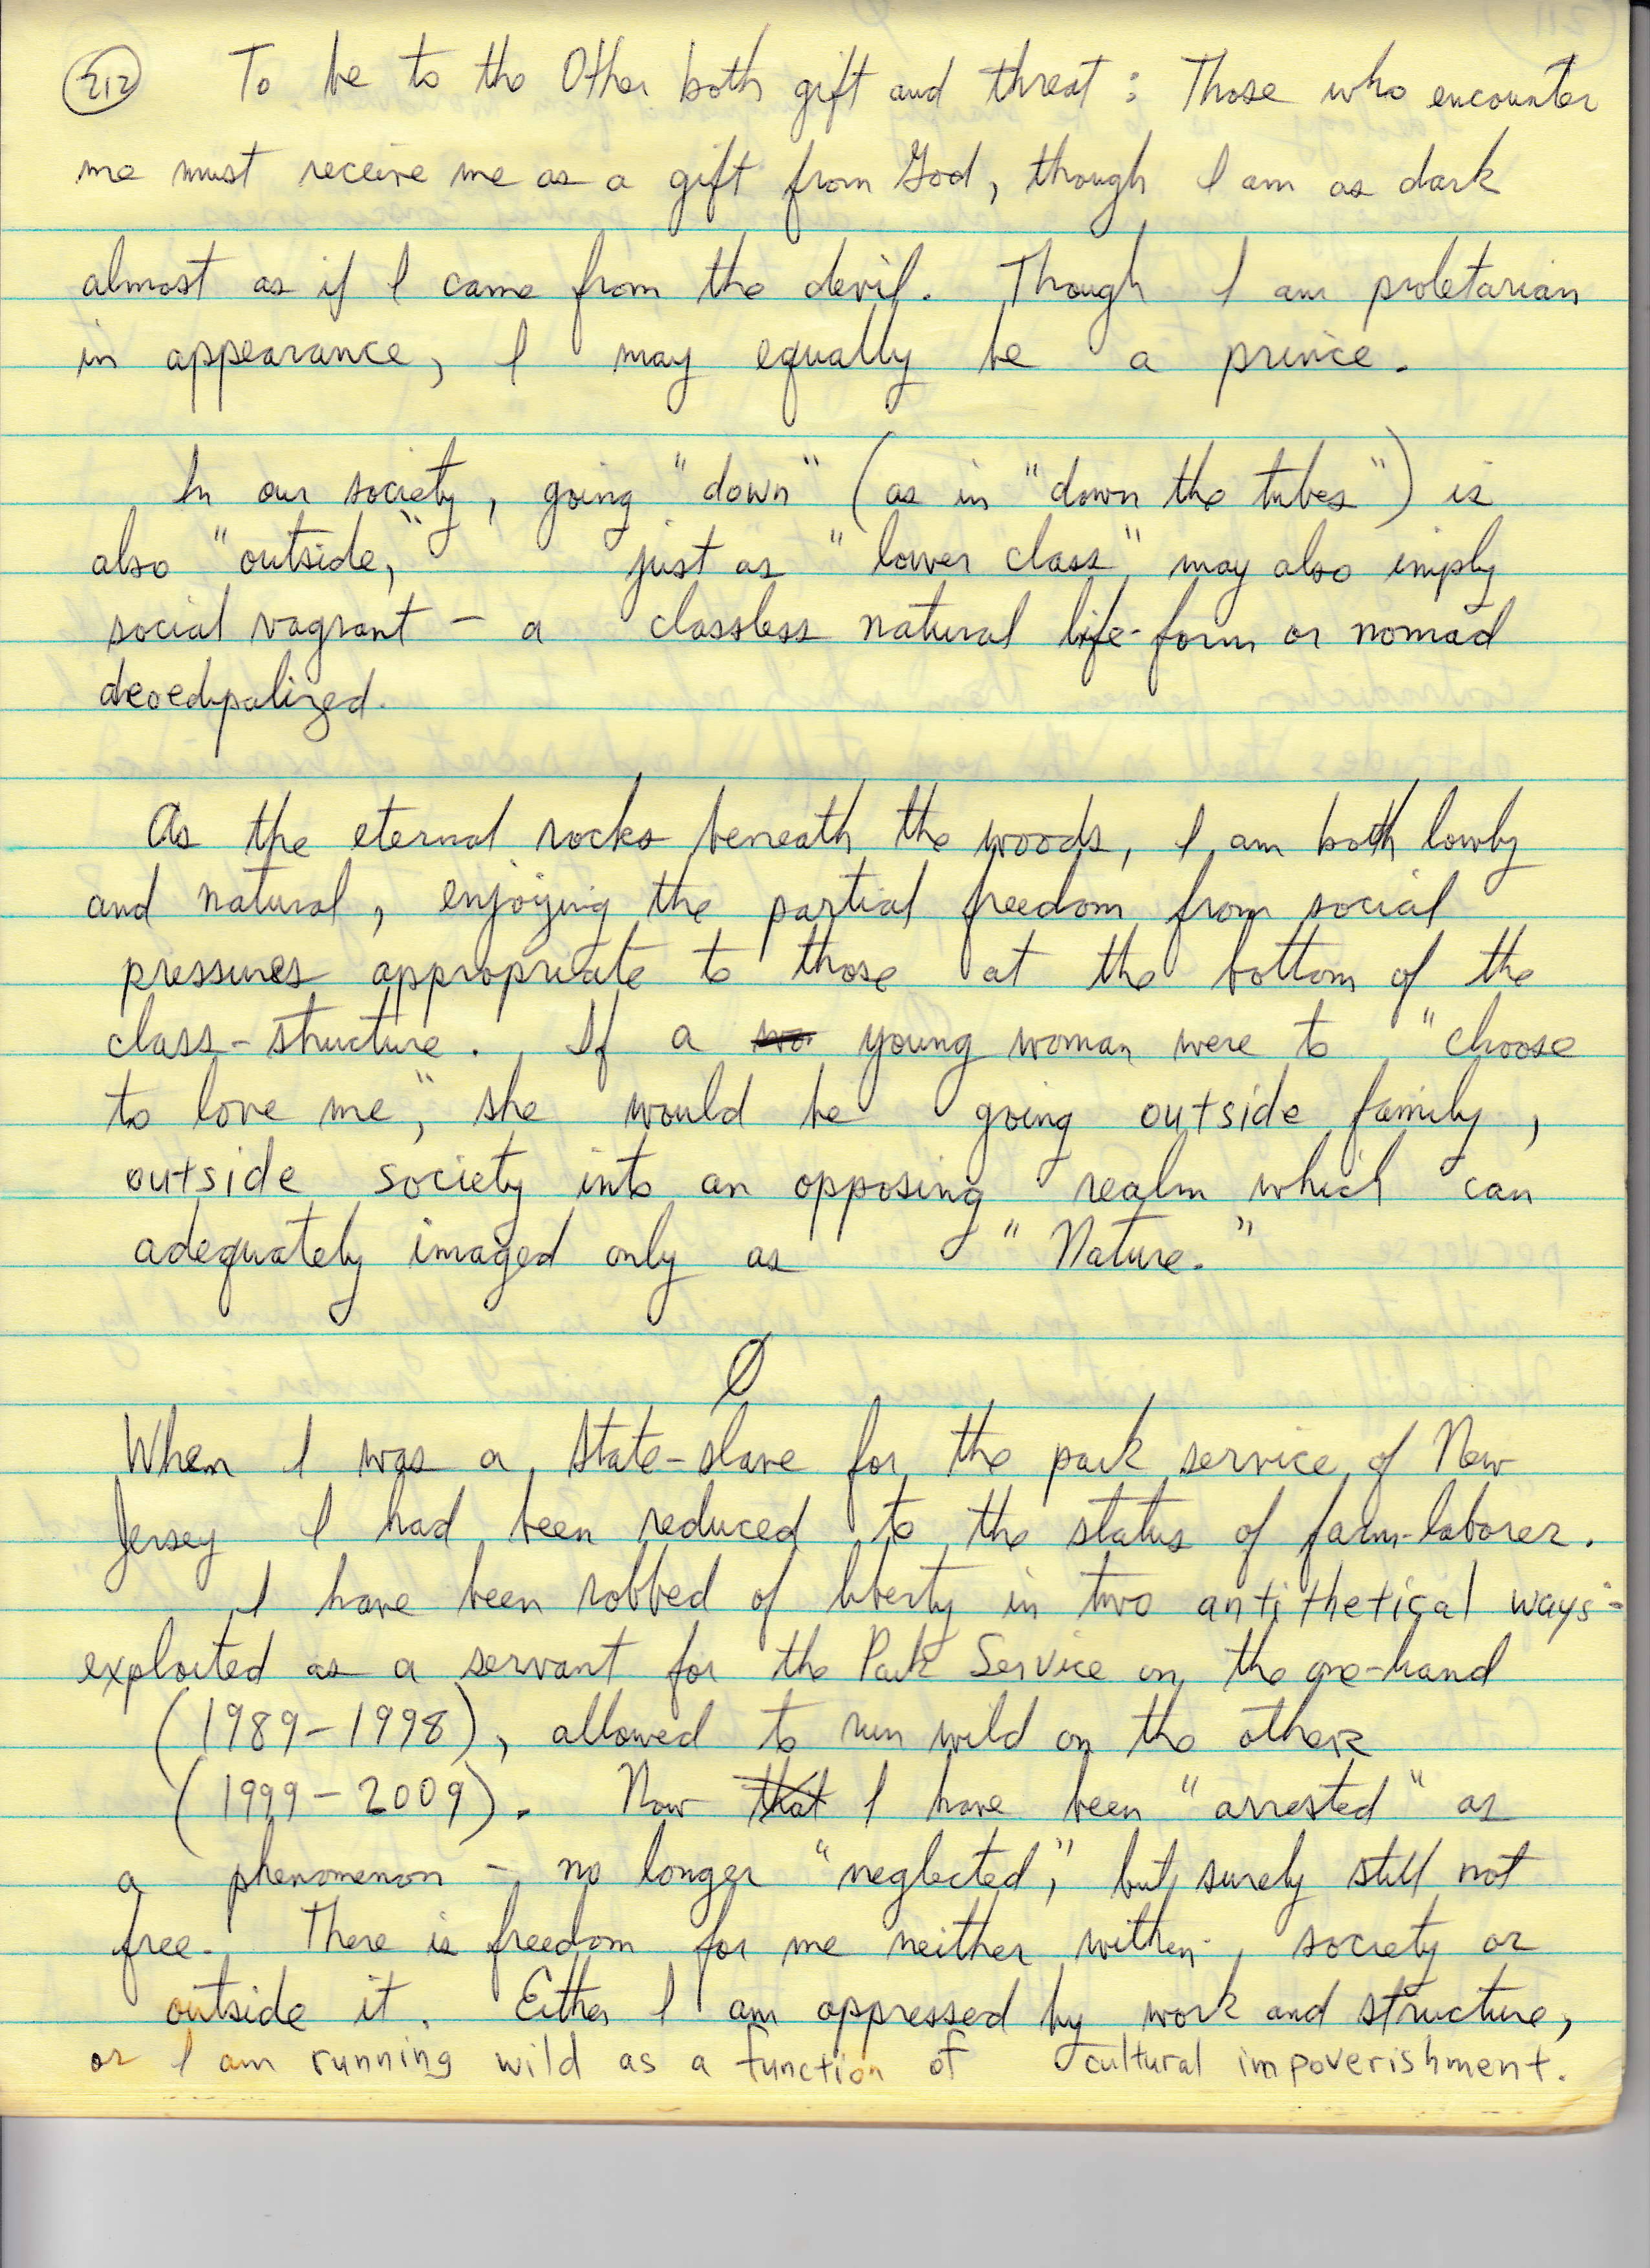 212 To be to the Other both gift and threat : Those who encounter
me must receive me as a gift from God, though I am as dark
almost as if I came from the devil. Though I am proletarian
in appearance, I may equally be a prince.
In our society, going "down" (as in "down the tubes") is
also "outside," just as "lower class" may also imply
social vagrant – a classless natural life-form or nomad
deoedipalized.
As the eternal rocks beneath the woods, I am both lowly
and natural, enjoying the partial freedom from social
pressures appropriate to those at the bottom of the
class-structure. If a young woman were to "choose
to love me," she would be going outside family,
outside society into an opposing realm which can
adequately imaged only as "Nature."
Ø
When I was a state-slave for the park service of New
Jersey I had been reduced to the status of farm-laborer.
I have been robbed of liberty in two antithetical ways:
exploited as a servant for the Park Service on the one-hand
(1989-1998), allowed to run wild on the other
(1999-2009). Now that I have been "arrested" as
a phenomenon – no longer "neglected," but surely still not
free. There is freedom for me neither within society or
outside it. Either I am oppressed by work and structure,
or I am running wild as a function of cultural impoverishment.